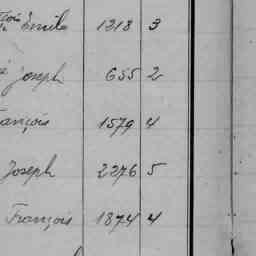 Emile 1218 3
Joseph 655 2
ançois 1579 4
Joseph 2276 5
François 1874 4